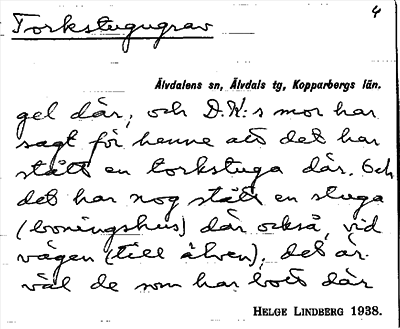 4
Torkstugugrav
Älvdalens sn, Älvdals tg, Kopparbergs län.
gel där, och D.K:s mor har
sagt för henne att det har
stått en torkstuga där. Och
det har nog stått en stuga
(boningshus) där också, vid
vägen (till älven), det är
väl de som har bott där
HELGE LINDBERG 1938.